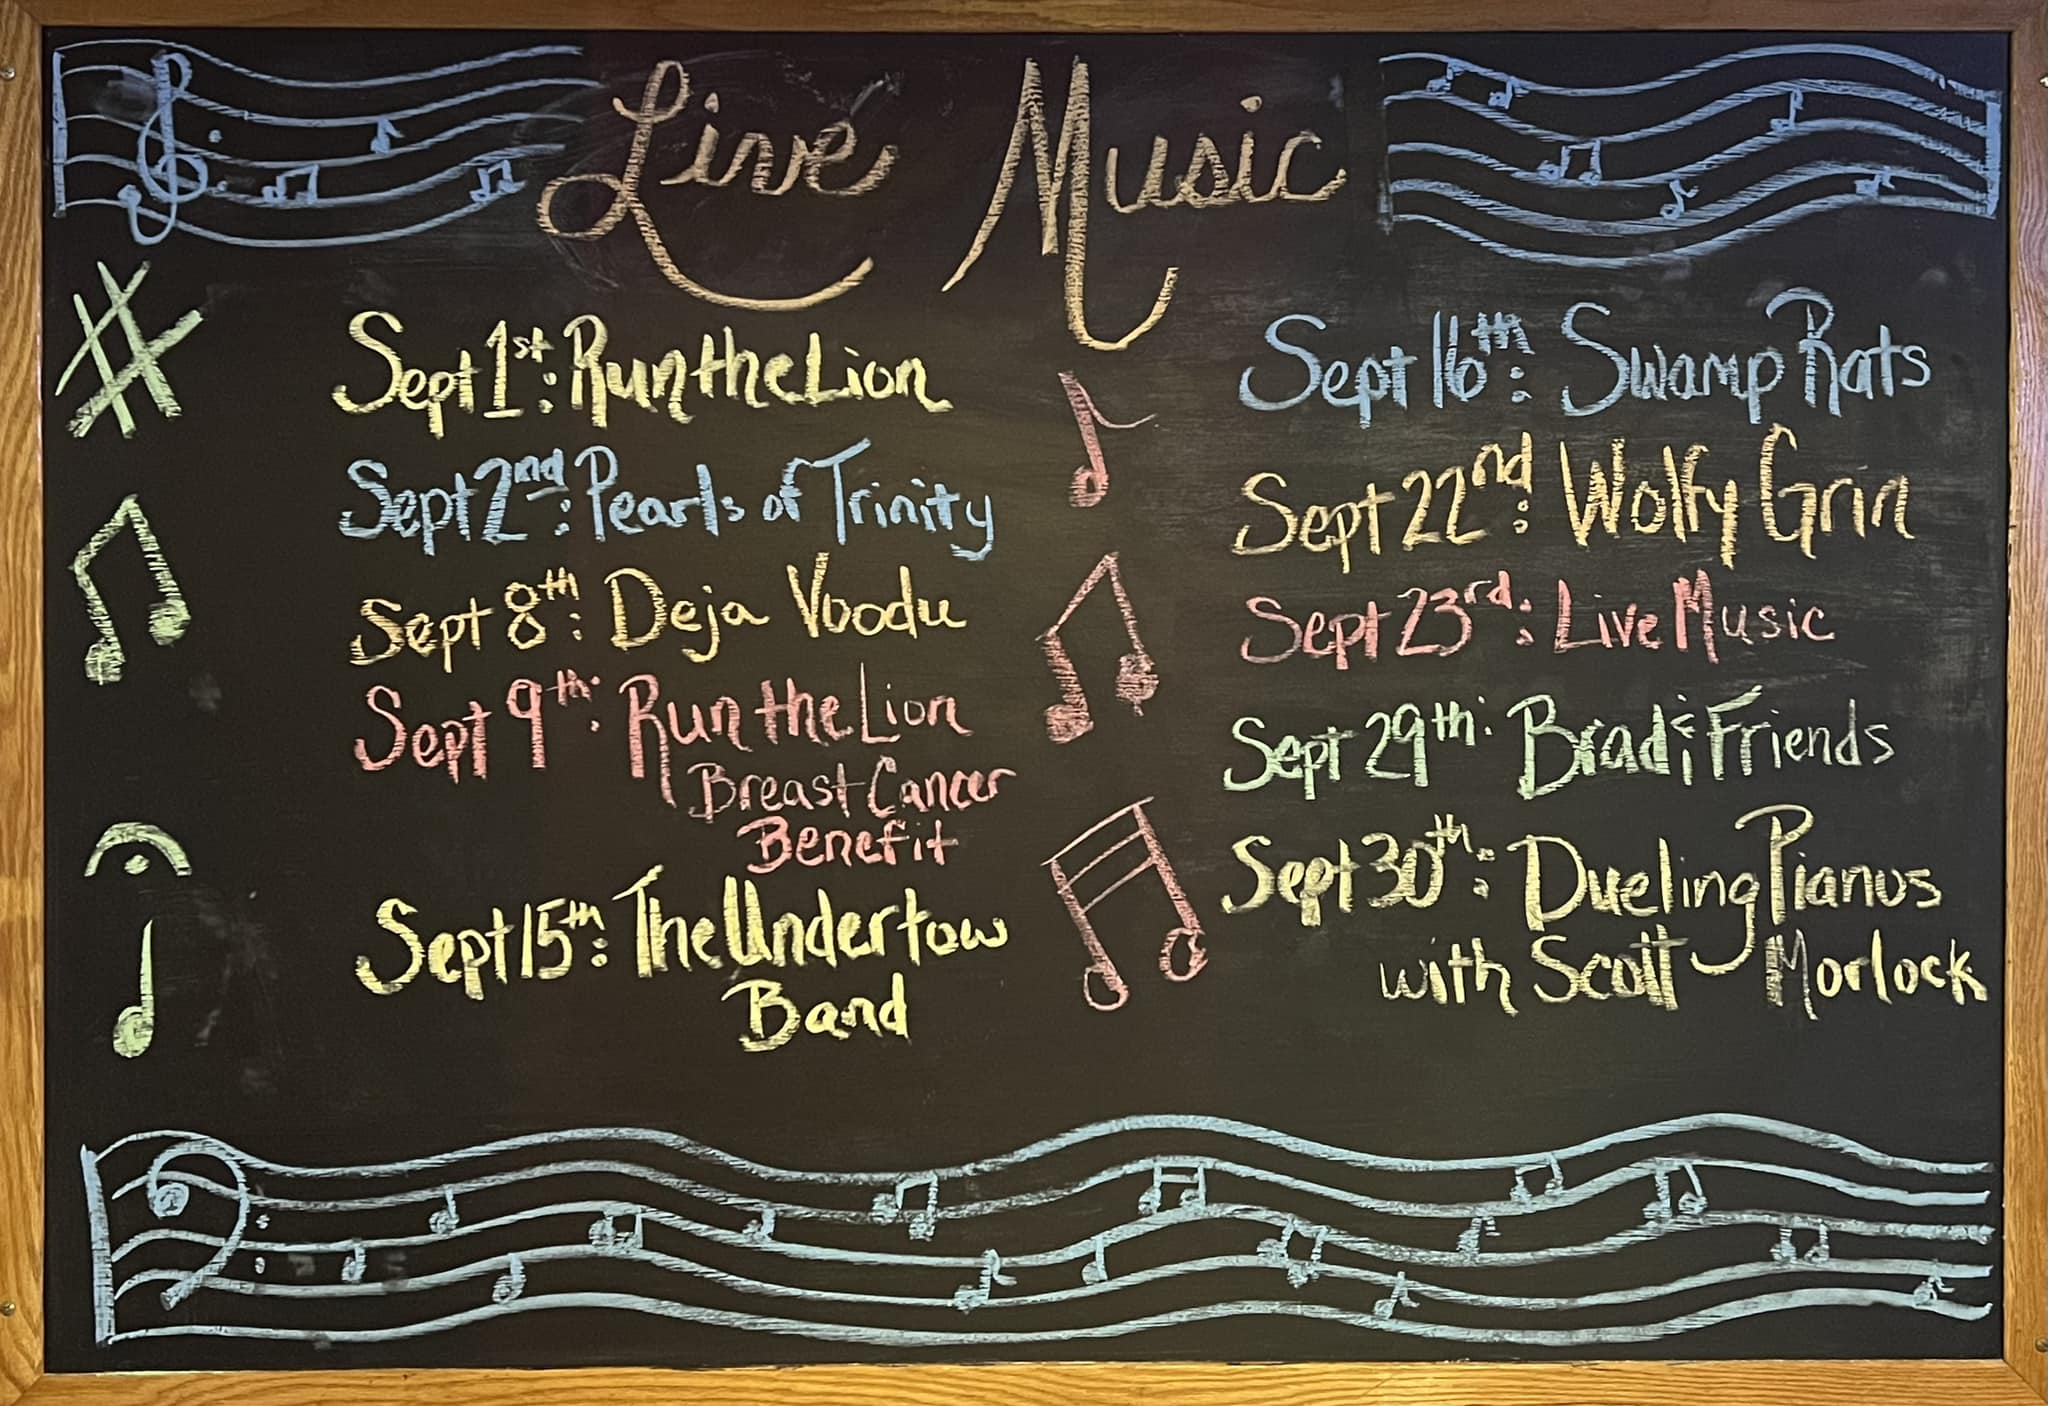 Live Music
Sept 1st: Run the Lion
Sept 2nd: Pearls of Trinity
Sept 8th: Deja Voodu
Sept 9th: Run the Lion
Breast Cancer
Benefit
Sept 15th: The Undertow
Band
Sept 16th: Swamp Rats
Sept 22nd: Wolfy Grin
Sept 23rd: Live Music
Sept 29th: Brad & Friends
Sept 30th: Dueling Pianos
with Scott Morlock